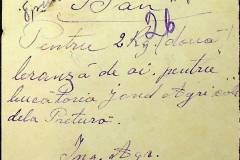 Ban
26
Pentru 2 Kg. (două)
leranză de ai pentru
bucătoria jond Agricol
dela Pretura.
Ing. Agr.